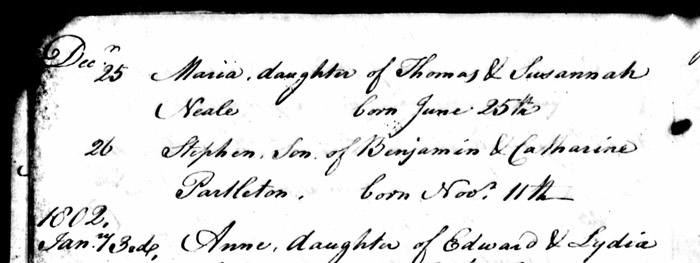 Decr
25 Maria, daughter of Thomas & Susannah
Neale born June 25th
26 Stephen, Son of Benjamin & Catharine
Partleton. born Novr. 11th
1802.
Janry 3rd, Anne, daughter of Edward & Lydia